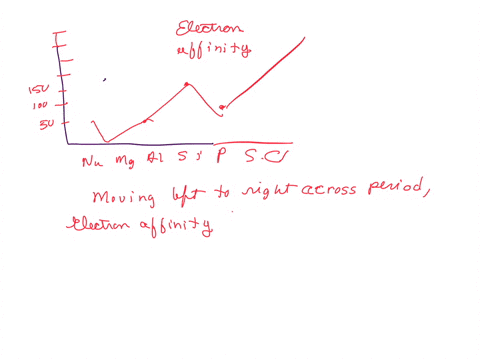 Electron
affinity
150
100
50
Na Mg Al Si P S Cl
Moving left to right across period,
electron affinity